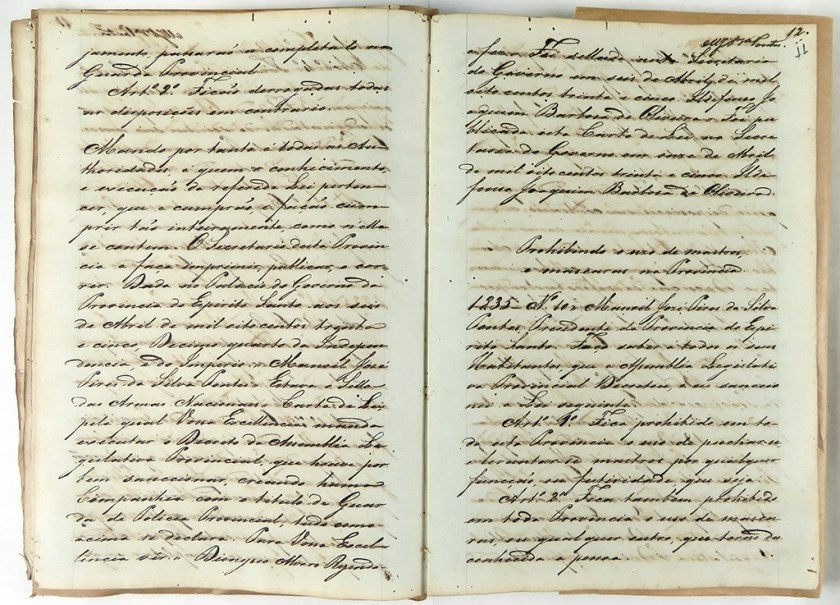 jamento, passará a completalo na
Guarda Provincial.
Artº 2º Ficão derrogadas todas
as disposições em contrario.
Mando por tanto á todas as Au-
thoridades, a quem o conhecimento,
e execução da referida Lei perten-
cer, que a cumprão, e fação cum-
prir tão inteiramente, como n'ella
se contem. O Secretario desta Provin-
cia a faça imprimir, publicar, e cor-
rer. Dada no Palacio do Governo da
Provincia do Espirito Santo aos seis
de Abril de mil oito centos trynta
e cinco, Decimo quarto da Indepen-
dencia, e do Imperio. Manoel José
Pires da Silva Pontes. Estava o Sello
das Armas Nacionaes. Carta de Lei,
pela qual Vossa Excellencia manda
executar o Decreto da Assemblea Le-
gislativa Provincial, que houve por
bem sanccionar, creando huma
Companhia com o titulo de Guar-
da de Policia Provincial, tudo como
acima se declara. Para Vossa Excel-
lencia ver.
12.
a fez. Foi sellada nesta Secretaria
do Governo em seis de Abril de mil
oito centos trinta e cinco. Ildefonso Jo-
aquim Barbosa de Oliveira. Foi pu-
blicada esta Carta de Lei na Secre-
taria do Governo em onze de Abril
de mil oito centos trinta e cinco. Ilde-
fonso Joaquim Barbosa de Oliveira.
Prohibindo o uso de mastros,
e mascaras na Provincia
1835 Nº 10 Manoel José Pires da Silva
Pontes, Presidente da Provincia do Espi-
rito Santo. Faço saber a todos os seus
Habitantes, que a Assemblea Legislati-
va Provincial Decretou, e eu sanccio-
nei a Lei seguinte.
Artº 1º Fica prohibido em to-
da esta Provincia o uso de puchar-se
e levantar-se mastros por qualquer
função, ou festividade que seja.
Artº 2º Fica tambem prohibido
em toda Provincia o uso de masca-
ras, ou qual quer outro, que torne des
conhecida a pessoa.